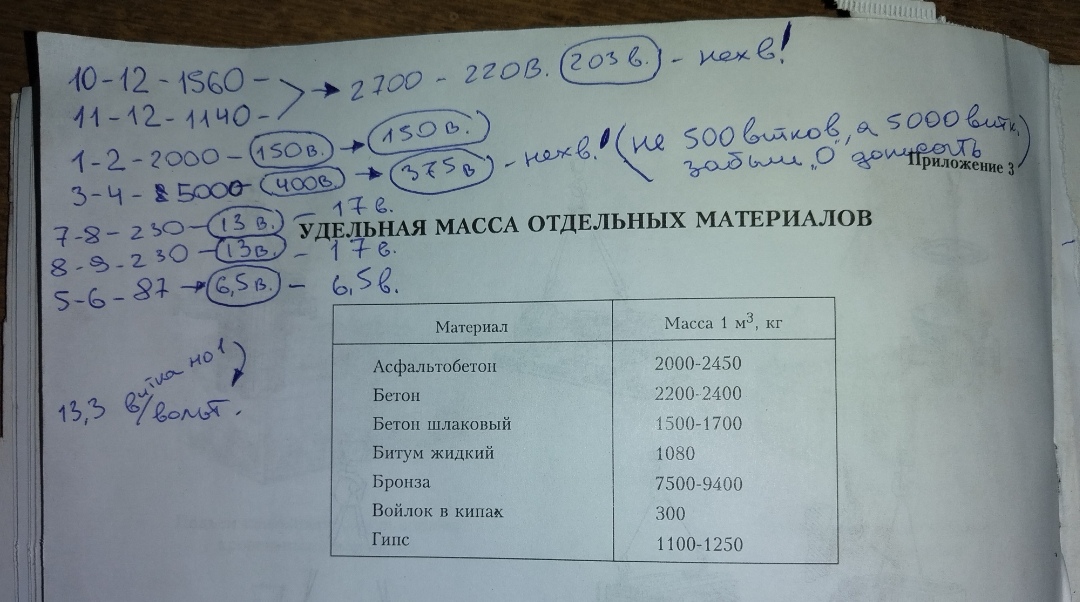 10-12-1560-
11-12-1140-
→ 2700 - 220в. 203в. - нехв!
1-2-2000- 150в. → 150в.
3-4-5000- 400в. → 375в - нехв.! (не 500 витков, а 5000 витк,
забыли „0" дописать)
Приложение 3
7-8-230- 13в. - 17в.
УДЕЛЬНАЯ МАССА ОТДЕЛЬНЫХ МАТЕРИАЛОВ
8-9-230- 13в. - 17в.
5-6-87 → 6,5в. - 6,5в.
13,3 витка на 1
вольт.
Материал Масса 1 м³, кг
Асфальтобетон 2000-2450
Бетон 2200-2400
Бетон шлаковый 1500-1700
Битум жидкий 1080
Бронза 7500-9400
Войлок в кипах 300
Гипс 1100-1250